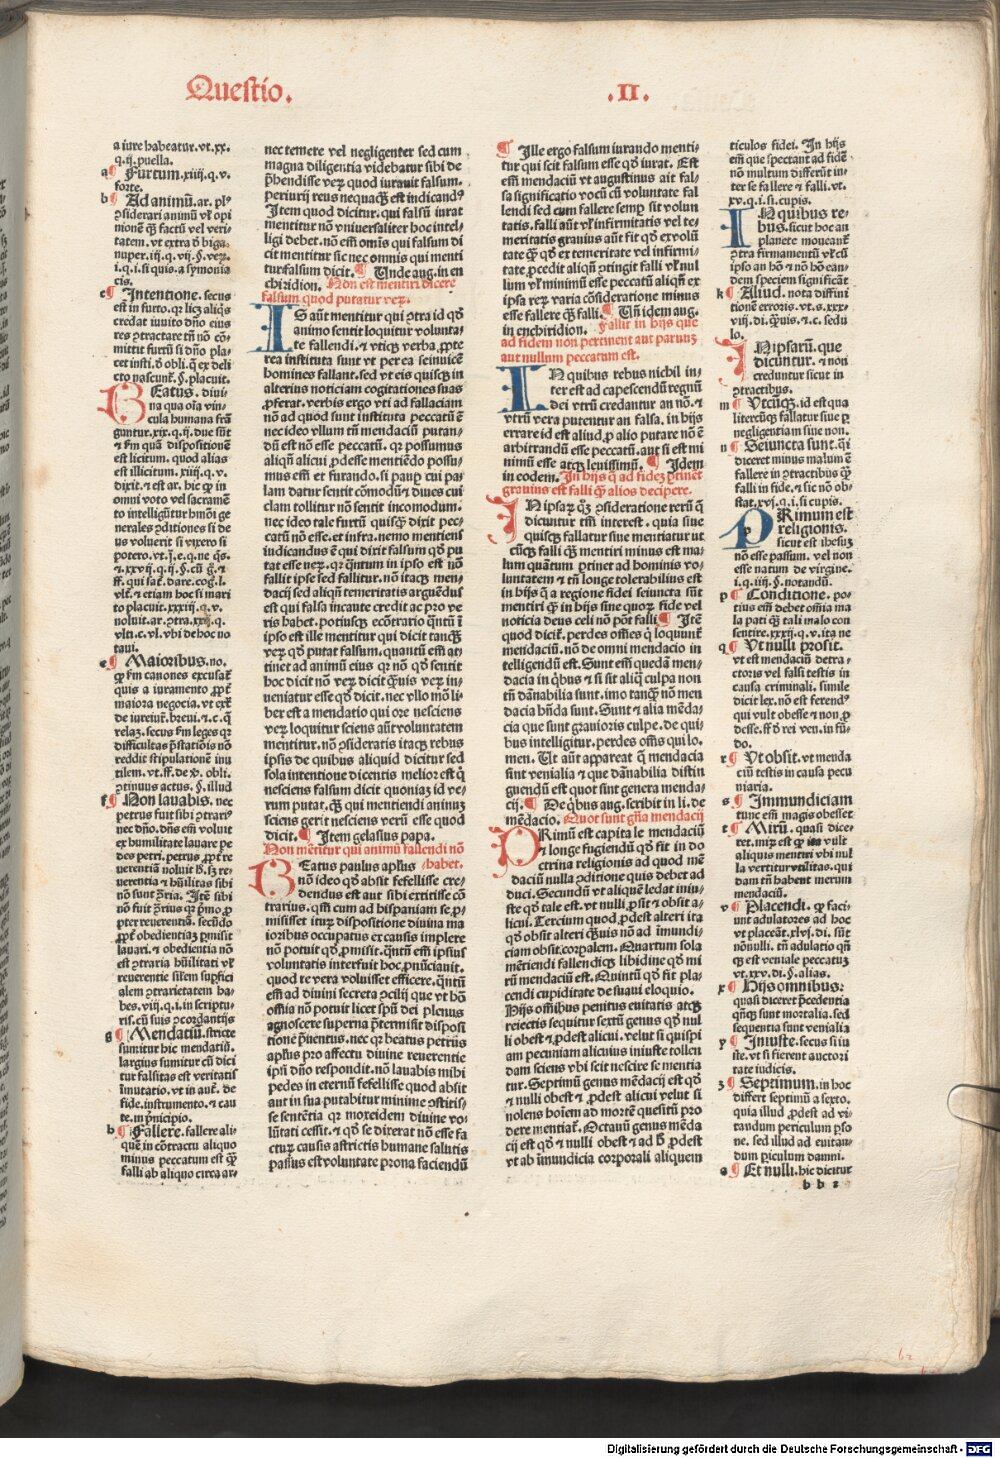 Questio. .II.
a iure habeatur. vt. xx.
q. ij. puella.
a ¶ Furtum. xiiij. q. v.
forte.
b ¶ Ad animū. ar. pl'
ꝯsiderari animū vel opi
nionē q̄ȝ factū vel veri
tatem. vt extra ð biga.
nuper. iij. q. vij. §. veꝝ.
i. q. i. si quis. a symonia
cis.
c ¶ Intentione. secus
est in furto. qꝛ licȝ aliqs
credat inuito dn̄o eius
res ꝯtractare tn̄ nō cō-
mittit furtū si dn̄o pla-
cet insti. ð obli. q̄ ex deli
cto nascunt̄. §. placuit.
BEatus. diui-
na qua oīa vin-
cula humana frā
guntur. xix. q. ij. due sūt
⁊ ẜm quā dispositionē
est licitum. quod alias
est illicitum. xiiij. q. v.
dixit. ⁊ est ar. hic ꝙ in
omni voto vel sacramē
to intelligūtur hmōi ge
nerales ꝯditiones si de
us voluerit si vixero si
potero. vt. j. e. q. ne q̄s.
⁊. xxvij. q. ij. §. cū g̅. ⁊
ff. qui sat̄. dare. cog. l.
vlt̄. ⁊ etiam hoc si mari
to placuit. xxxiij. q. v.
noluit. ar. ꝯtra. xxij. q.
vlti. c. vl. vbi de hoc no
taui.
e ¶ Maioribus. no.
ꝙ ẜm canones excusat̄
quis a iuramento ꝓpt̄
maiora negocia. vt ext̄
de iureiur̄. breui. ⁊. c. q̄
relaȝ. secus ẜm leges qꝛ
difficultas p̄statiōis nō
reddit stipulationē inu
tilem. vt. ff. de v̄. obli.
ꝯtinuus actus. §. illud
f ¶ Non lauabis. nec
petrus fuit sibi ꝯtrari'
nec dn̄o. dn̄s em̄ voluit
ex humilitate lauare pe
des petri. petrus ꝓpt̄ re
uerentiā noluit h̄. sȝ re-
uerentia ⁊ hūilitas sibi
nō sunt ꝯtria. Itē sibi
nō fuit ꝯtrius qꝛ p̄mo ꝓ
pter reuerentiā. secūdo
ꝓpt̄ obedientiaȝ p̄misit
lauari. ⁊ obedientia nō
est ꝯtraria hūilitati vel
reuerentie silem supfici
alem ꝯtrarietatem ha-
bes. viij. q. i. in scriptu-
ris. cū suis ꝯcordantijs
g ¶ Mendatiū. stricte
sumitur hic mendatiū.
largius sumitur cū dici
tur falsitas est veritatis
īmutatio. vt in aut̄. de
fide. instrumento. ⁊ cau
te. in p̄ncipio.
h ¶ Fallere. fallere ali-
quē in cōtractu aliquo
minus peccatum est q̄ȝ
falli ab aliquo circa ar-
nec temere vel negligenter sed cum
magna diligentia videbatur sibi de
p̄hendisse veꝝ quod iurauit falsum.
periurij reus nequaq̄ȝ est iudicand'
Item quod dicitur. qui falsū iurat
mentitur nō vniuersaliter hoc intel-
ligi debet. nō em̄ omīs qui falsum di
cit mentitur sic nec omnis qui menti
tur falsum dicit. ¶ Unde aug. in en
chiridion. Non est mentiri dicere
falsum quod putatur veꝝ.
IS aūt mentitur qui ꝯtra id qð
animo sentit loquitur volunta-
te fallendi. ⁊ vtiqȝ verba ꝓpte
rea instituta sunt vt per ea seinuicē
homines fallant. sed vt eis quisqȝ in
alterius noticiam cogitationes suas
ꝓferat. verbis ergo vti ad fallaciam
nō ad quod sunt instituta peccatū ē
nec ideo vllum tn̄ mendaciū putan-
dū est nō esse peccatū. qꝛ possumus
aliqn̄ alicui ꝓdesse mentiēdo possu-
mus em̄ ⁊ furando. si pauꝑ cui pa
lam datur sentit cōmodū ⁊ diues cui
clam tollitur nō sentit incomodum.
nec ideo tale furtū quisqȝ dixit pec-
catū nō esse. et infra. nemo mentiens
iudicandus ē qui dixit falsum qð pu
tat esse veꝝ. qꝛ q̄ntum in ipso est nō
fallit ipse sed fallitur. nō itaqȝ men-
dacij sed aliqn̄ temeritatis arguēdus
est qui falsa incaute credit ac pro ve
ris habet. potiusqȝ ecōtrario q̄ntū ī
ipso est ille mentitur qui dicit tanq̄ȝ
veꝝ qð putat falsum. quantū em̄ at-
tinet ad animū eius qꝛ nō qð sentit
hoc dicit nō veꝝ dicit q̄uis veꝝ in-
ueniatur esse qð dicit. nec vllo mō li-
ber est a mendatio qui ore nesciens
veꝝ loquitur sciens aūt voluntatem
mentitur. nō ꝯsideratis itaqȝ rebus
ipsis de quibus aliquid dicitur sed
sola intentione dicentis melior est q̄
nesciens falsum dicit quoniaȝ id ve-
rum putat. q̄ȝ qui mentiendi animuȝ
sciens gerit nesciens verū esse quod
dicit. ¶ Item gelasius papa.
Non mētitur qui animū fallendi nō
BEatus paulus apl'us /habet.
nō ideo qð absit fefellisse cre-
dendus est aut sibi extitisse cō
trarius. qm̄ cum ad hispaniam se ꝓ-
misisset iturȝ dispositione diuina ma
ioribus occupatus ex causis implere
nō potuit qð ꝓmisit. q̄ntū em̄ ipsius
voluntatis interfuit hoc ꝓnūciauit.
quod re vera voluisset efficere. q̄ntū
em̄ ad diuini secreta ꝯcilij que vt hō
oīa nō potuit licet spū dei plenus
agnoscere superna p̄termisit disposi
tionē p̄uentus. nec qꝛ beatus petrus
apl'us pro affectu diuine reuerentie
ipsi dn̄o respondit. nō lauabis mihi
pedes in eternū fefellisse quod absit
aut in sua putabitur minime ꝯstitis-
se sentētia qꝛ moxeidem diuine vo-
lūtati cessit. ⁊ qð se dixerat nō esse fa
cturȝ causis astrictis humane salutis
passus est voluntate prona faciendū
¶ Ille ergo falsum iurando menti-
tur qui scit falsum esse qð iurat. Est
em̄ mendaciū vt augustinus ait fal-
sa significatio vocū cū voluntate fal
lendi sed cum fallere semꝑ sit volun
tatis. falli aūt vel infirmitatis vel te-
meritatis grauius aūt fit qð ex volū
tate q̄ȝ qð ex temeritate vel infirmi-
tate ꝓcedit aliqn̄ ꝯtingit falli vel nul
lum vel minimū esse peccatū aliqn̄ ex
ipsa veꝝ varia cōsideratione minus
esse fallere q̄ȝ falli. ¶ Un̄ idem aug.
in enchiridion. Fallit in hijs que
ad fidem non pertinent aut paruuȝ
aut nullum peccatum est.
IN quibus rebus nichil in-
ter est ad capescendū regnū
dei vtrū credantur an nō. ⁊
vtrū vera putentur an falsa. in hijs
errare id est aliud ꝓ alio putare nō ē
arbitrandū esse peccatū. aut si est mi
nimū esse atqȝ leuissimū. ¶ Idem
in eodem. In hijs q̄ ad fideȝ ꝑtinet
grauius est falli q̄ȝ alios decipere.
IN ipsaꝝ qȝ ꝯsideratione rerū q̄
dicuntur tm̄ interest. quia siue
quisqȝ fallatur siue mentiatur vt
cūqȝ falli q̄ȝ mentiri minus est ma-
lum quantum ꝑtinet ad hominis vo-
luntatem ⁊ tn̄ longe tolerabilius est
in hijs q̄ a regione fidei seiuncta sūt
mentiri q̄ȝ in hijs sine quoꝝ fide vel
noticia deus celi nō pōt falli ¶ Itē
quod dicit̄. perdes oēs q̄ loquunt̄
mendaciū. nō de omni mendacio in
telligendū est. Sunt em̄ quedā men-
dacia in q̄bus ⁊ si sit aliq̄ culpa non
tn̄ dānabilia sunt. imo tanq̄ȝ nō men
dacia hn̄da sunt. Sunt ⁊ alia mēda-
cia que sunt grauioris culpe. de qui-
bus intelligitur. perdes oēs qui lo.
men. Ut aūt appareat q̄ mendacia
sint venialia ⁊ que dānabilia distin
guendū est quot sint genera menda-
cij. ¶ De q̄bus aug. scribit in li. de
mēdacio. Quot sunt gn̄a mendacij
PRimū est capitale mendaciū
⁊ longe fugiendū qð fit in do
ctrina religionis ad quod mē
daciū nulla ꝯditione quis debet ad
duci. Secundū vt aliquē ledat iniu-
ste qð tale est. vt nulli ꝓsit ⁊ obsit a-
licui. Tercium quod ꝓdest alteri ita
qð obsit alteri q̄uis nō ad īmundi-
ciam obsit corꝑalem. Quartum sola
mētiendi fallendiqȝ libidine qð mi
rū mendaciū est. Quintū qð fit pla-
cendi cupiditate de suaui eloquio.
Hijs oībus penitus euitatis atqȝ
reiectis sequitur sextū genus qð nul
li obest ⁊ ꝓdest alicui. velut si quispi
am pecuniam alicuius iniuste tollen
dam sciens vbi scit nescire se mentia
tur. Septimū genus mēdacij est qð
⁊ nulli obest ⁊ ꝓdest alicui velut si
nolens hoīem ad mortē quesitū pro
dere mentiat̄. Octauū genus mēda
cij est qð ⁊ nulli obest ⁊ ad h̄ ꝓdest
vt ab īmundicia corporali aliquem
ticulos fidei. In hijs
em̄ que spectant ad fidē
nō multum differūt in-
ter se fallere ⁊ falli. vt.
xv. q. i. si. cupis.
IN quibus re-
bus. sicut hoc an
planete moueant̄
ꝯtra firmamentū vel cū
ipso an hō ⁊ nō hō ean-
dem speciem significāt
k ¶ Aliud. nota diffini
tionē erroris. vt. s. xxx-
viij. di. q̄uis. ⁊. c. sedu
lo.
INipsarū. que
dicūntur. ⁊ non
creduntur sicut in
ꝯtractibus.
m ¶ Vtcūqȝ. id est qua
litercūqȝ fallatur siue ꝑ
negligentiam siue non.
n ¶ Seiuncta sunt. q̄i
diceret minus malum ē
fallere in ꝯtractibus q̄ȝ
falli in fide. ⁊ sic nō ob-
stat. xvj. q. i. si cupis.
PRimum est
religionis.
sicut est ihesuȝ
nō esse passum. vel non
esse natum de virgine.
i. q. iiij. §. notandū.
p ¶ Conditione. po-
tius em̄ debet oīa ma
la pati q̄ȝ tali malo con
sentire. xxxij. q. v. ita ne
q ¶ Vt nulli prosit.
vt est mendaciū detra-
ctoris vel falsi testis in
causa criminali. simile
dicit lex. nō est ferend'
qui vult obesse ⁊ non ꝓ
desse. ff. ð rei ven. in fū-
do.
r ¶ Vt obsit. vt menda
ciū testis in causa pecu
niaria.
s ¶ Immundiciam
tunc em̄ magis obesset
t ¶ Mirū. quasi dice-
ret. miꝝ est ꝙ is vult
aliquis mentiri vbi nul
la vertitur vtilitas. qui
dam tn̄ habent merum
mendaciū.
v ¶ Placendi. ꝙ faci-
unt adulatores ad hoc
vt placeāt. xlvj. di. sūt
nōnulli. tn̄ adulatio qn̄
q̄ȝ est veniale peccatuȝ
vt. xxv. di. §. alias.
x ¶ Hijs omnibus.
quasi diceret p̄cedentia
qn̄qȝ sunt mortalia. sed
sequentia sunt venialia
y ¶ Iniuste. secus si iu
ste. vt si fierent auctori
tate iudicis.
z ¶ Septimum. in hoc
differt septimū a sexto.
quia illud ꝓdest ad vi-
tandum periculum ꝑso
ne. sed illud ad euitan-
dum ꝑiculum damni.
a ¶ Et nulli. hic dicitur
b b 2
Digitalisierung gefördert durch die Deutsche Forschungsgemeinschaft - DFG